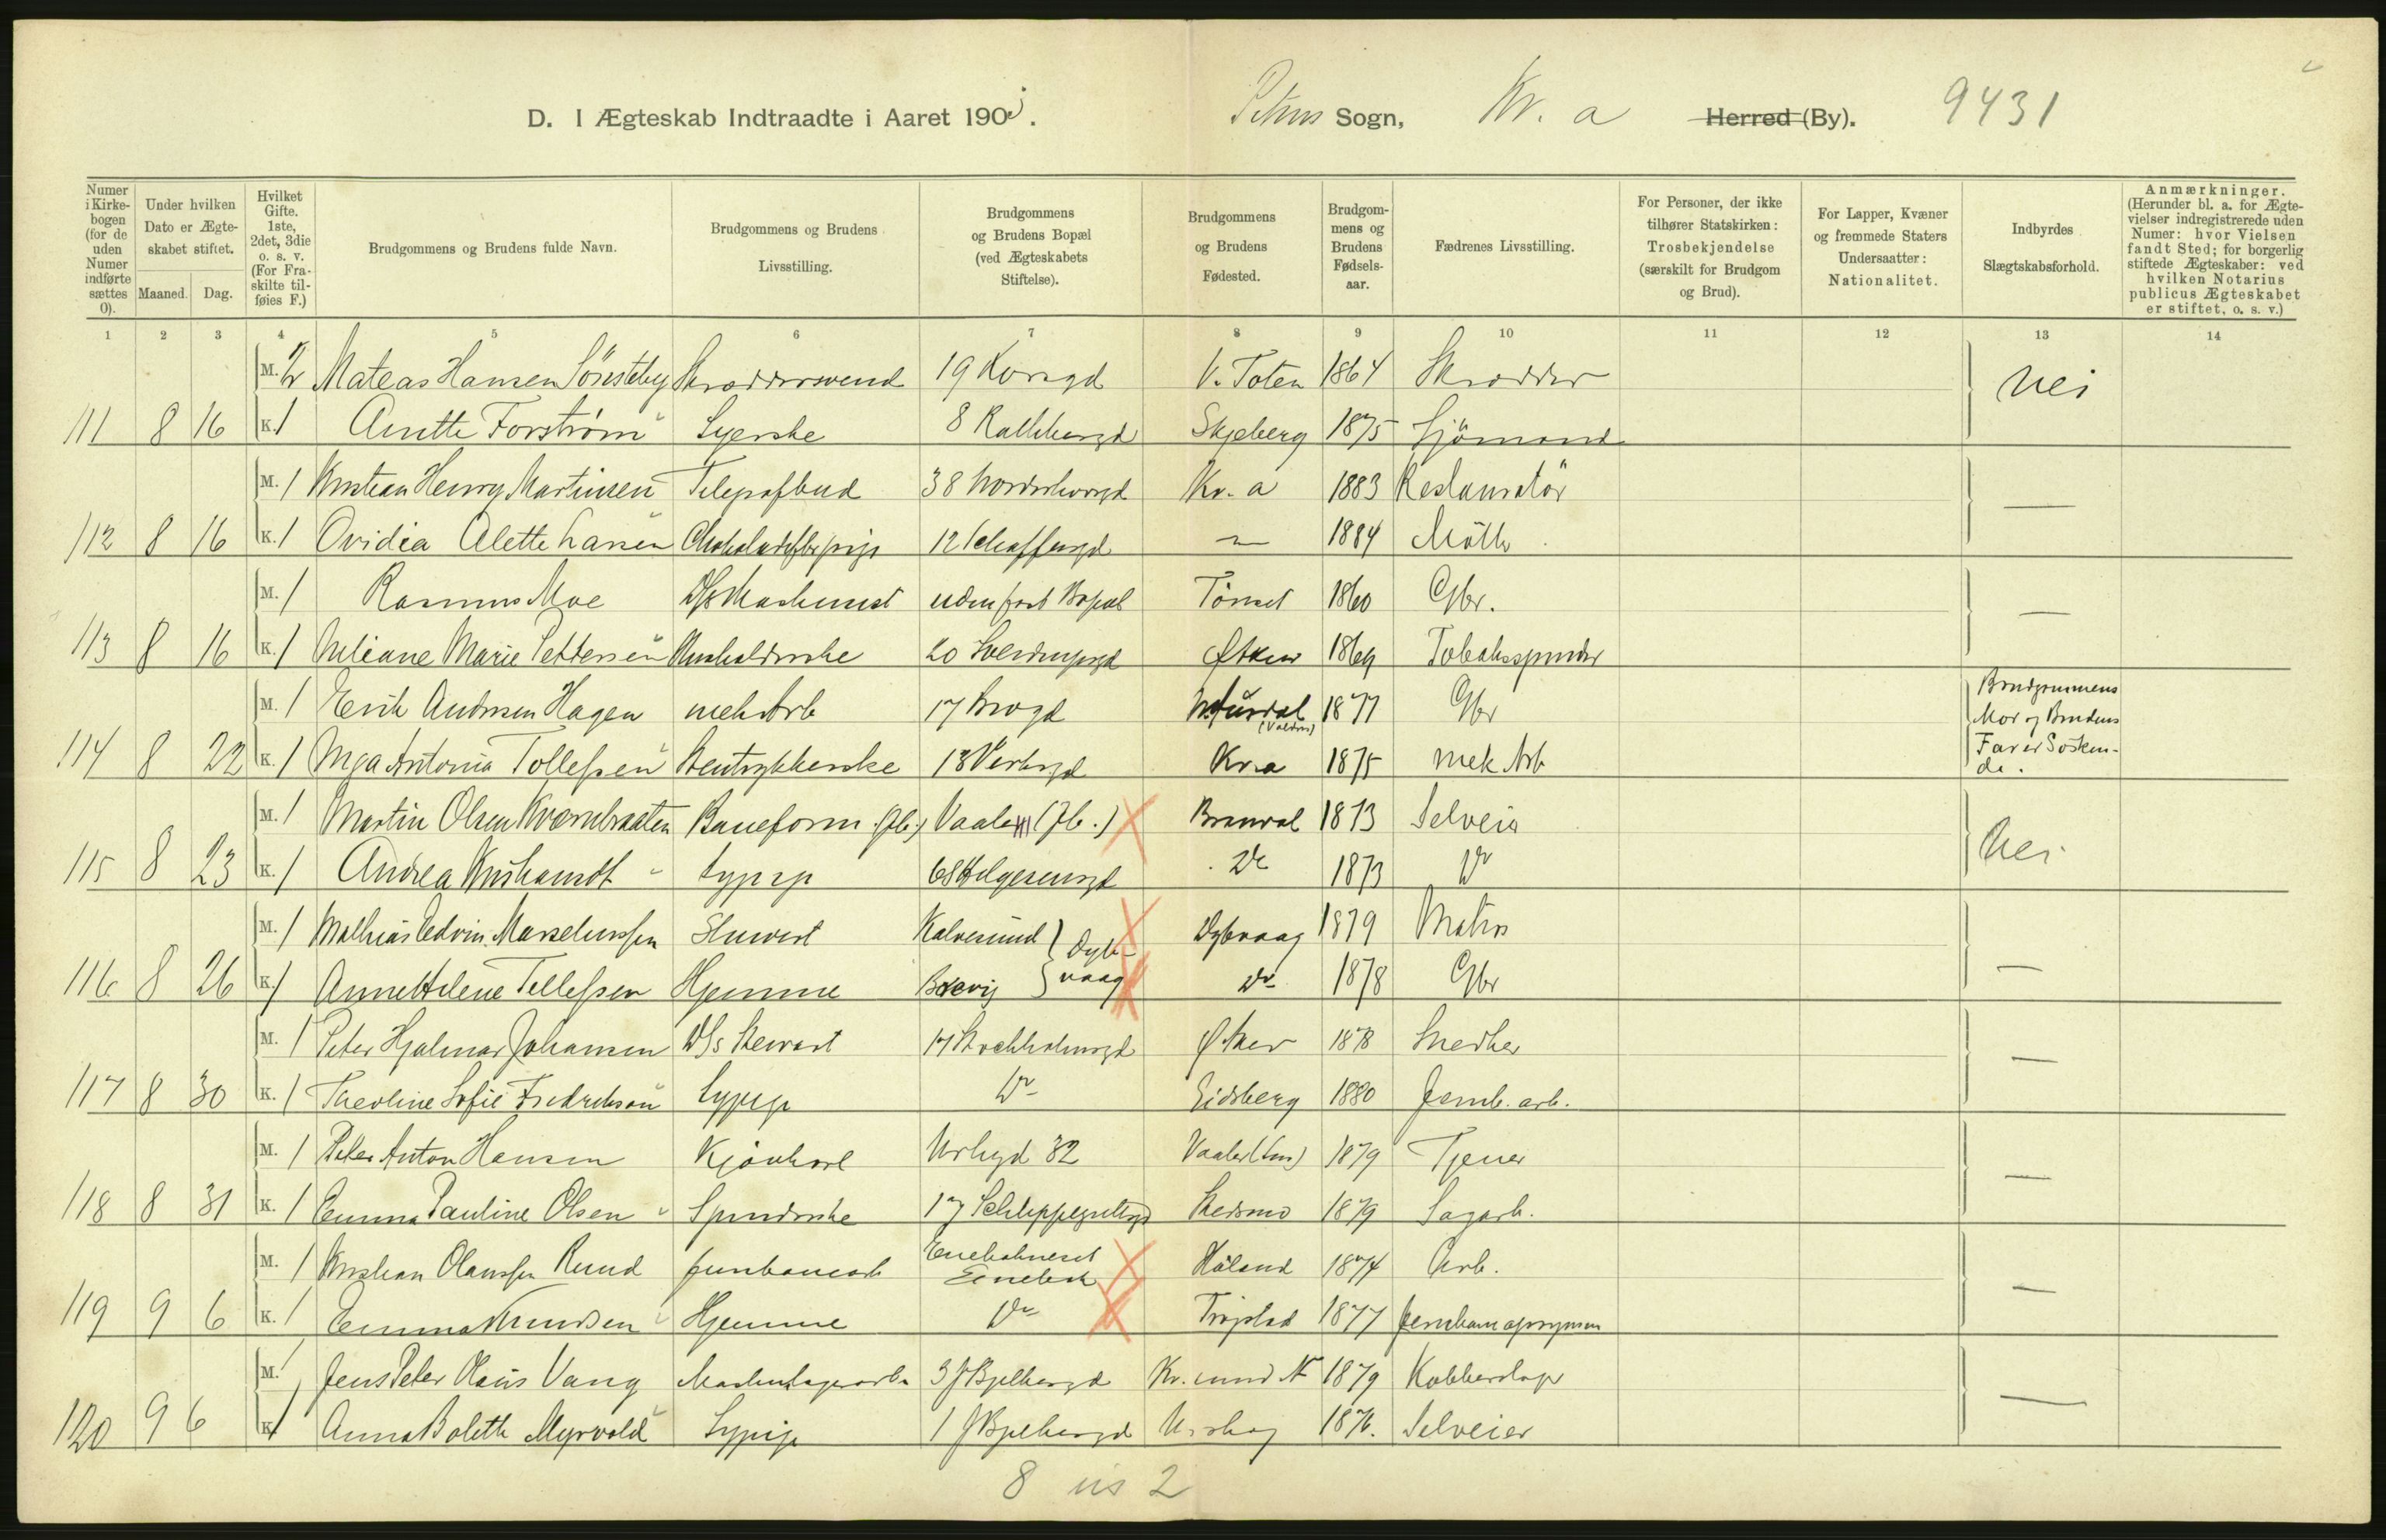 D. I Ægteskab Indtraadte i Aaret 190
Petrus Sogn, Kr. a Herred (By). 9431
Numer i Kirkebogen (for de uden Numer indførte sættes 0).
Under hvilken Dato er Ægteskabet stiftet.
Maaned. Dag.
Hvilket Gifte. 1ste, 2det, 3die o. s. v. (For Fraskilte tilføies F.)
Brudgommens og Brudens fulde Navn.
Brudgommens og Brudens Livsstilling.
Brudgommens og Brudens Bopæl (ved Ægteskabets Stiftelse).
Brudgommens og Brudens Fødested.
Brudgommens og Brudens Fødselsaar.
Fædrenes Livsstilling.
For Personer, der ikke tilhører Statskirken: Trosbekjendelse (særskilt for Brudgom og Brud).
For Lapper, Kvæner og fremmede Staters Undersaatter: Nationalitet.
Indbyrdes Slægtskabsforhold.
Anmærkninger. (Herunder bl. a. for Ægtevielser indregistrerede uden Numer: hvor Vielsen fandt Sted; for borgerlig stiftede Ægteskaber: ved hvilken Notarius publicus Ægteskabet er stiftet, o. s. v.)
1 2 3 4 5 6 7 8 9 10 11 12 13 14
M. 2 Mateas Hansen Skræddersvend 19 Korsgd V. Toten 1864 Skrædder Nei
111 8 16 K. 1 Anette Forstrøm Syerske 8 Skjeberg 1875 Sjömand
M. 1 Kristian Henry Martinsen Telegrafbud 38 Kr. a 1883 Restauratör —
112 8 16 K. 1 Ovidia Alette Larsen 12 Schaffersgd — 1884 Möller
M. 1 Rasmus Moe D/S Maskinist uden fast Bopæl Tönset 1860 Gbr. —
113 8 16 K. 1 Juliane Marie Pettersen Husholderske 20 Sverdrupsgd Ø Aker 1864 Tobaksspinder
M. 1 Erik Andersen Hagen mek Arb 17 Brogd N. Aurdal (Valdres) 1877 Gbr Brudgommens Mor og Brudens
114 8 22 K. 1 Inga Antonia Tollefsen 13 Verksgd Kr.a 1875 mek Arb Far er Søskende.
M. 1 Martin Olsen Kværnbraaten Baneform. (Jb.) Vaaler (Jb.) Branval 1873 Selveier Nei
115 8 23 K. 1 Andrea Sypige 68 Helgesensgd Do 1873 Do
M. 1 Mathias Edvin Marselinssen Stuvert Kalvesund } Dybvaag Dybvaag 1879 Matros —
116 8 26 K. 1 Anne Helene Tellefsen Hjemme Do 1878 Gbr
M. 1 Peter Hjalmar Johansen D/S Stewart 17 Stockholmsgd Ø Aker 1878 Snedker —
117 8 30 K. 1 Theoline Sofie Fredriksen Sypige Do Eidsberg 1880 Jernb. arb.
M. 1 Peter Anton Hansen Kjörekarl Urtegd 32 Vaaler (Sm) 1879 Tjener —
118 8 31 K. 1 Emma Pauline Olsen Spinderske 17 Schleppegrellsgd Skedsmo 1879 Sagarb.
M. 1 Kristian Olaussen Rund Jernbanearb Enebak Høland 1874 Arb. —
119 9 6 K. 1 Emma Knudsen Hjemme Do Trøgstad 1877
M. 1 Jens Peter Olaus Vang 3 J Bjelkesgd Kr. sund N 1879 Kobberslager —
120 9 6 K. 1 Anna Bolette Myrvold Sypige 1 J Bjelkesgd Urskog 1876. Selveier
8 us 2